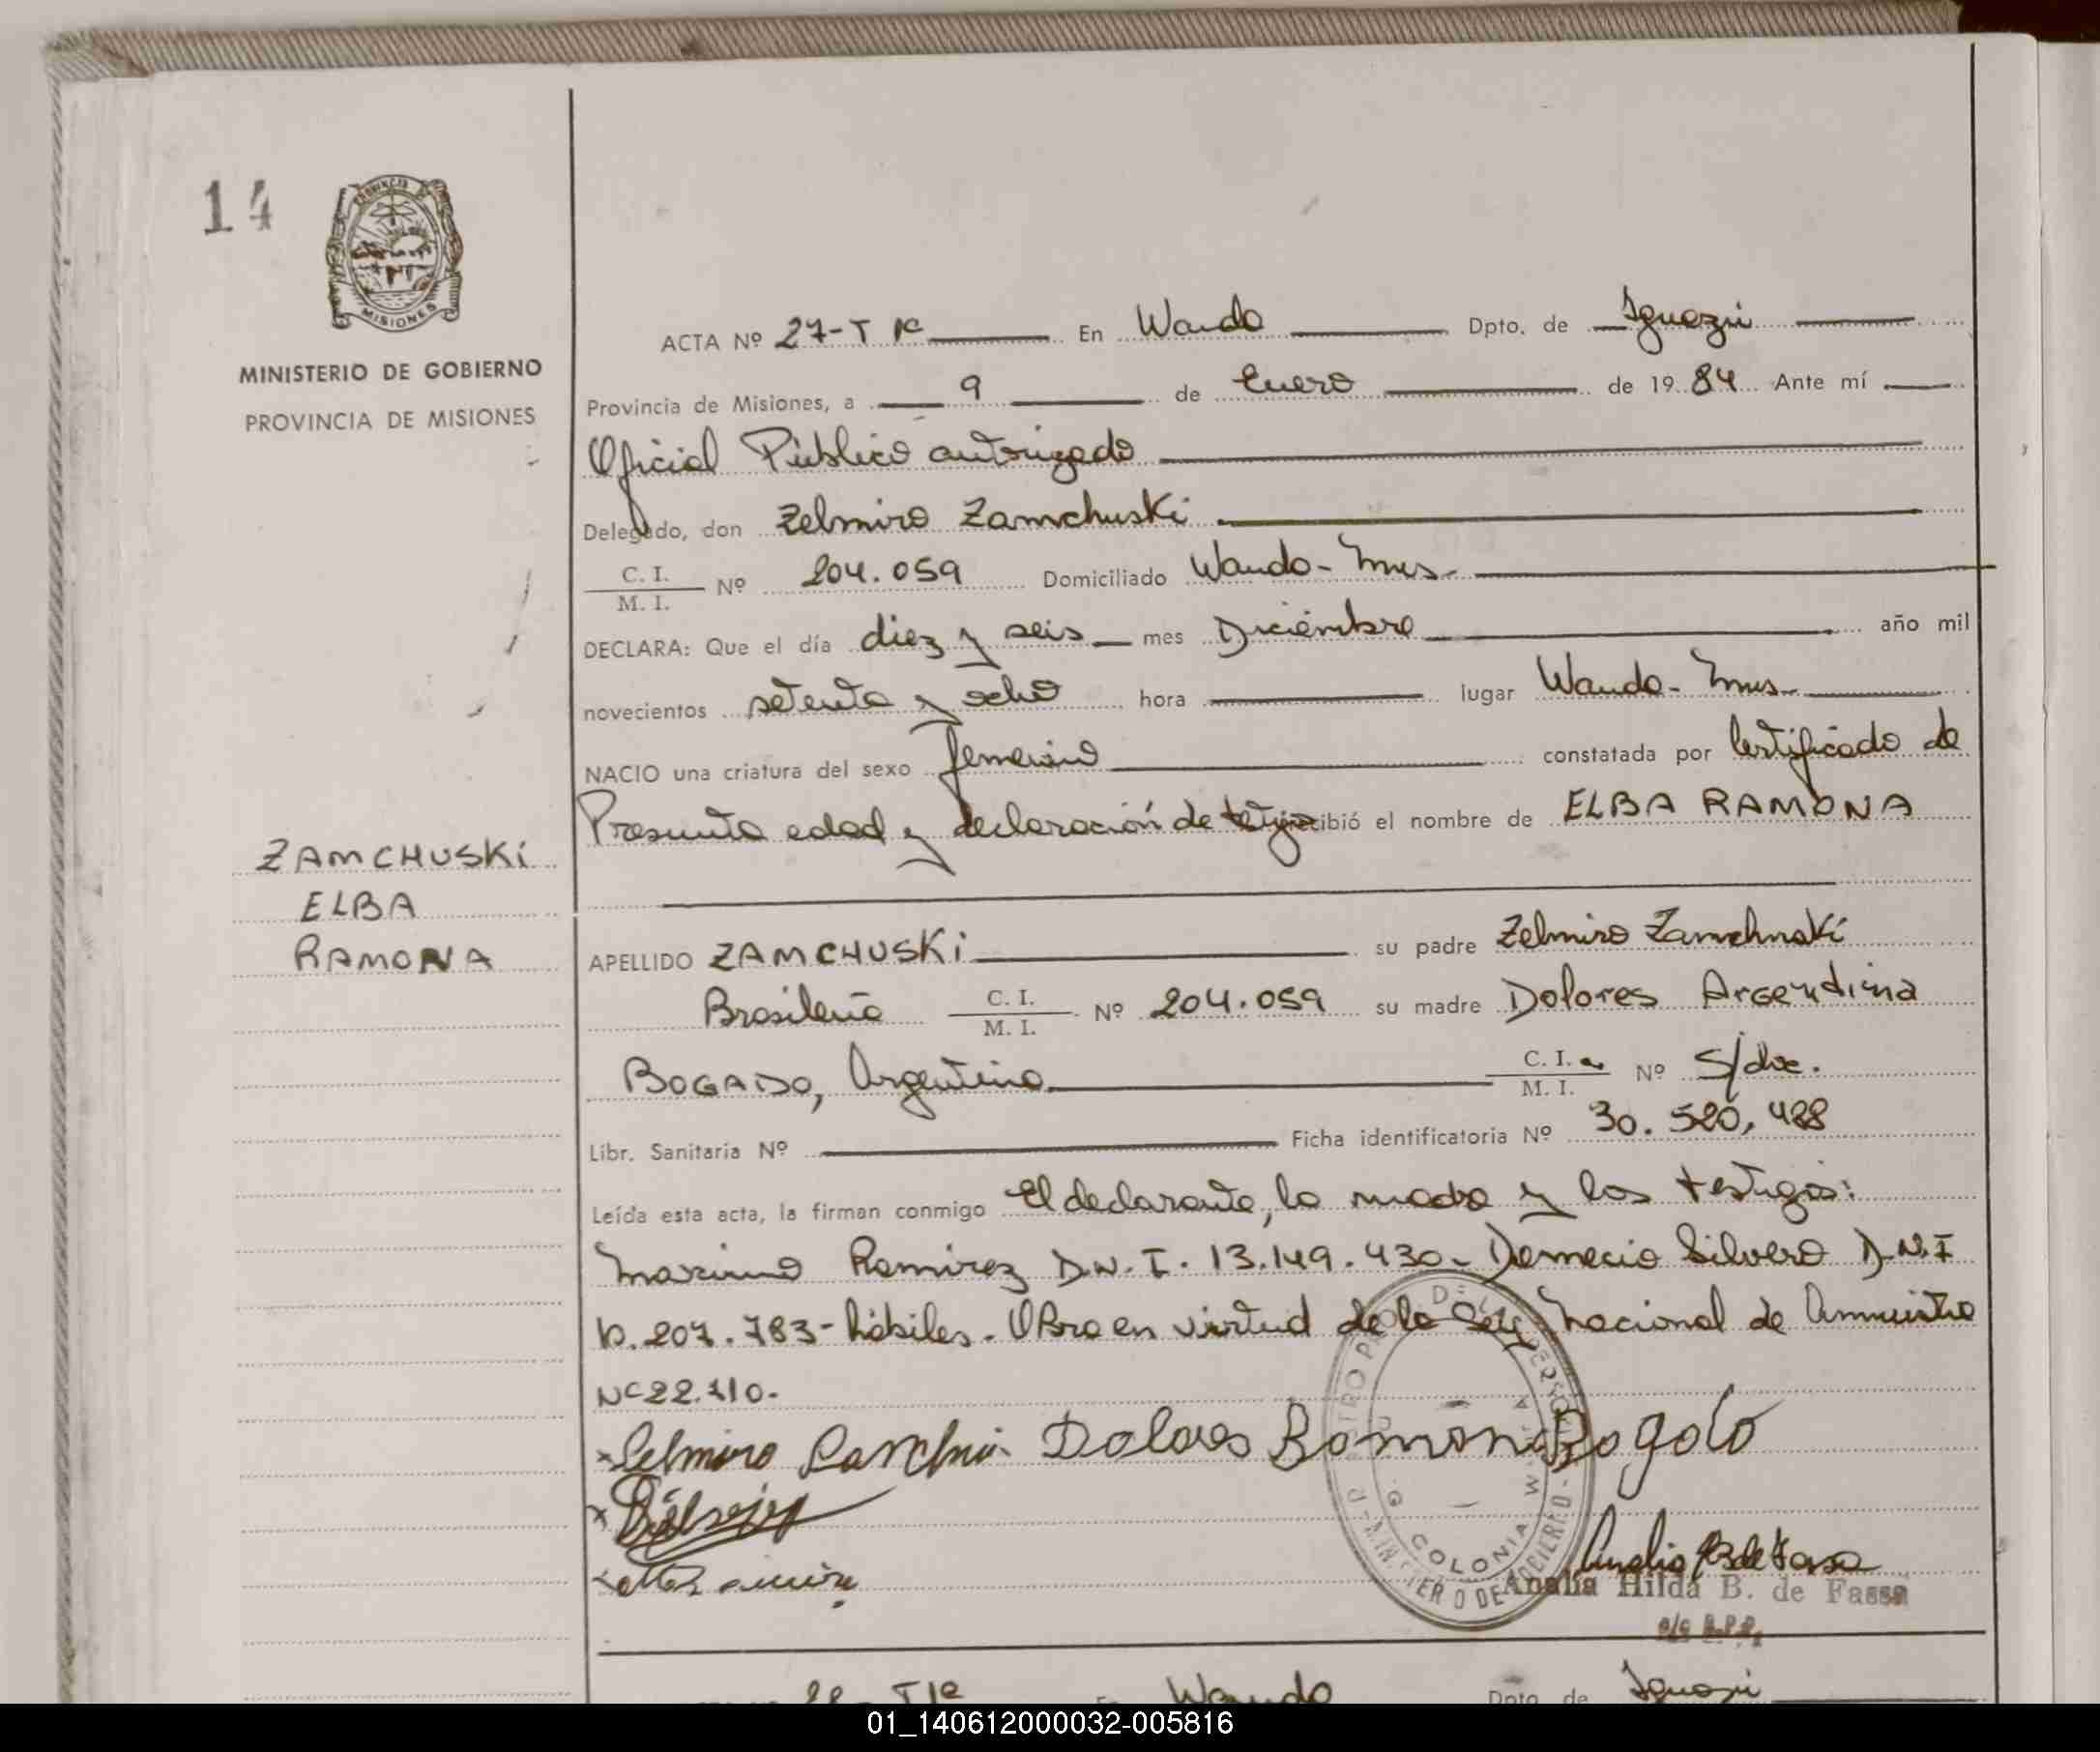 14
PROVINCIA DE
MISIONES
MINISTERIO DE GOBIERNO
PROVINCIA DE MISIONES
ACTA Nº 27-T Iº En Wanda Dpto. de Iguazú
Provincia de Misiones, a 9 de Enero de 1984 Ante mí
Oficial Público autorizado
Delegado, don Zelmiro Zamchuski
C. I.
M. I. Nº 204.059 Domiciliado Wanda - Mnes.
DECLARA: Que el día diez y seis mes Diciembre año mil
novecientos setenta y ocho hora lugar Wanda - Mnes.
NACIO una criatura del sexo femenino constatada por Certificado de
Presunta edad y declaración de testigos recibió el nombre de ELBA RAMONA
ZAMCHUSKi
ELBA
RAMONA
APELLIDO ZAMCHUSKi su padre Zelmiro Zamchuski
Brasileña C. I.
M. I. Nº 204.059 su madre Dolores Argentina
BOGADO, Argentina C. I.
M. I. Nº S/doc.
Libr. Sanitaria Nº Ficha identificatoria Nº 30.520,488
Leída esta acta, la firman conmigo El declarante, la madre y los testigos:
Maximo Ramirez D.N.I. 13.149.430 - Demecio Silvero D.N.I
10.207.783 - hábiles. Obra en virtud de la Ley Nacional de Amnistia
Nº 22.410.
Dolores Romona Bogado
COLONIA WANDA
Analia Hilda B. de Fassa
28 - T Iº En Wanda Dpto de Iguazú
01_140612000032-005816